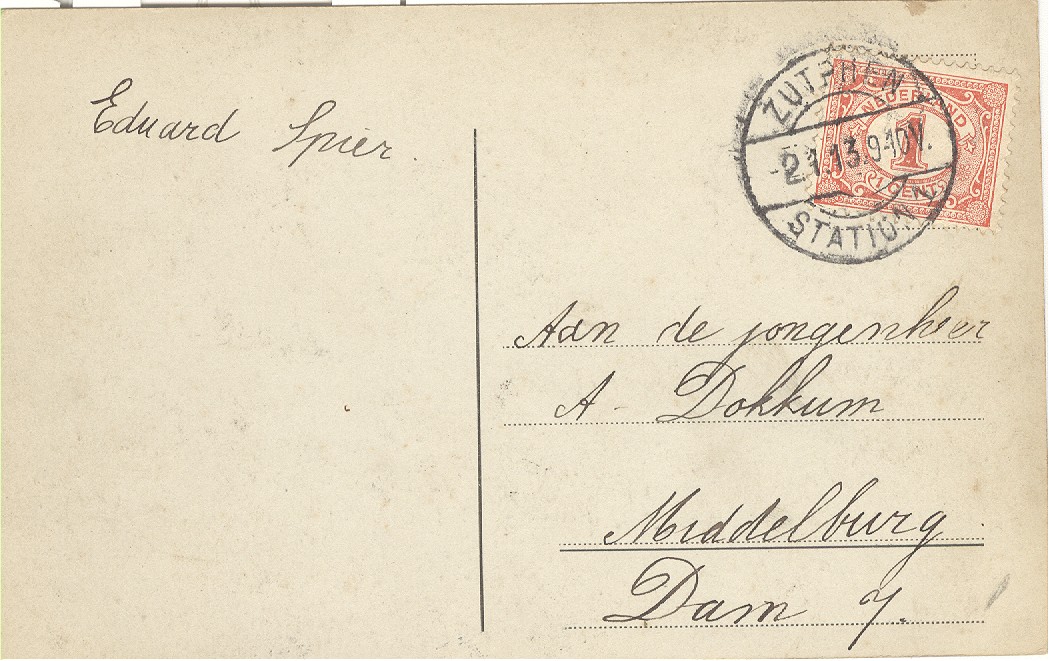 Eduard Spier.
ZUTPHEN
-2.1.13.9-10V.
STATION
NEDERLAND
1
(1 CENT)
Aan de jongenheer
A- Dokkum
Middelburg
Dam 7.